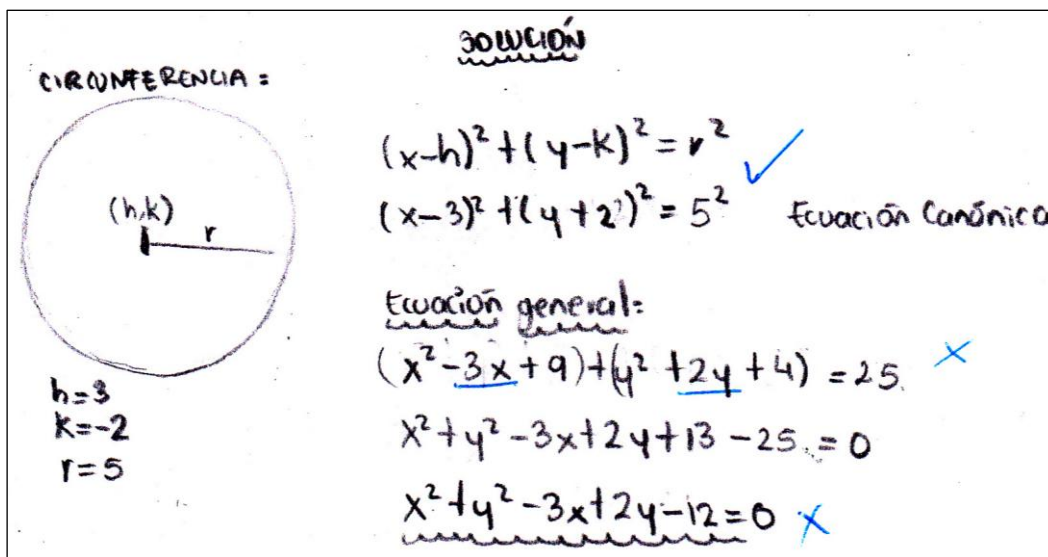 SOLUCIÓN
CIRCUNFERENCIA =
(h,k)
r
h=3
k=-2
r=5
(x-h)² + (y-k)² = r² ✓
(x-3)² + (y+2)² = 5² Ecuación Canónica
Ecuación general:
(x² - 3x + 9) + (y² + 2y + 4) = 25 ×
x² + y² - 3x + 2y + 13 - 25 = 0
x² + y² - 3x + 2y - 12 = 0 ×